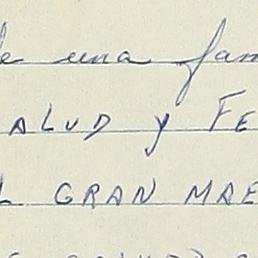 de una fam
ALUD y FE
L GRAN MAE